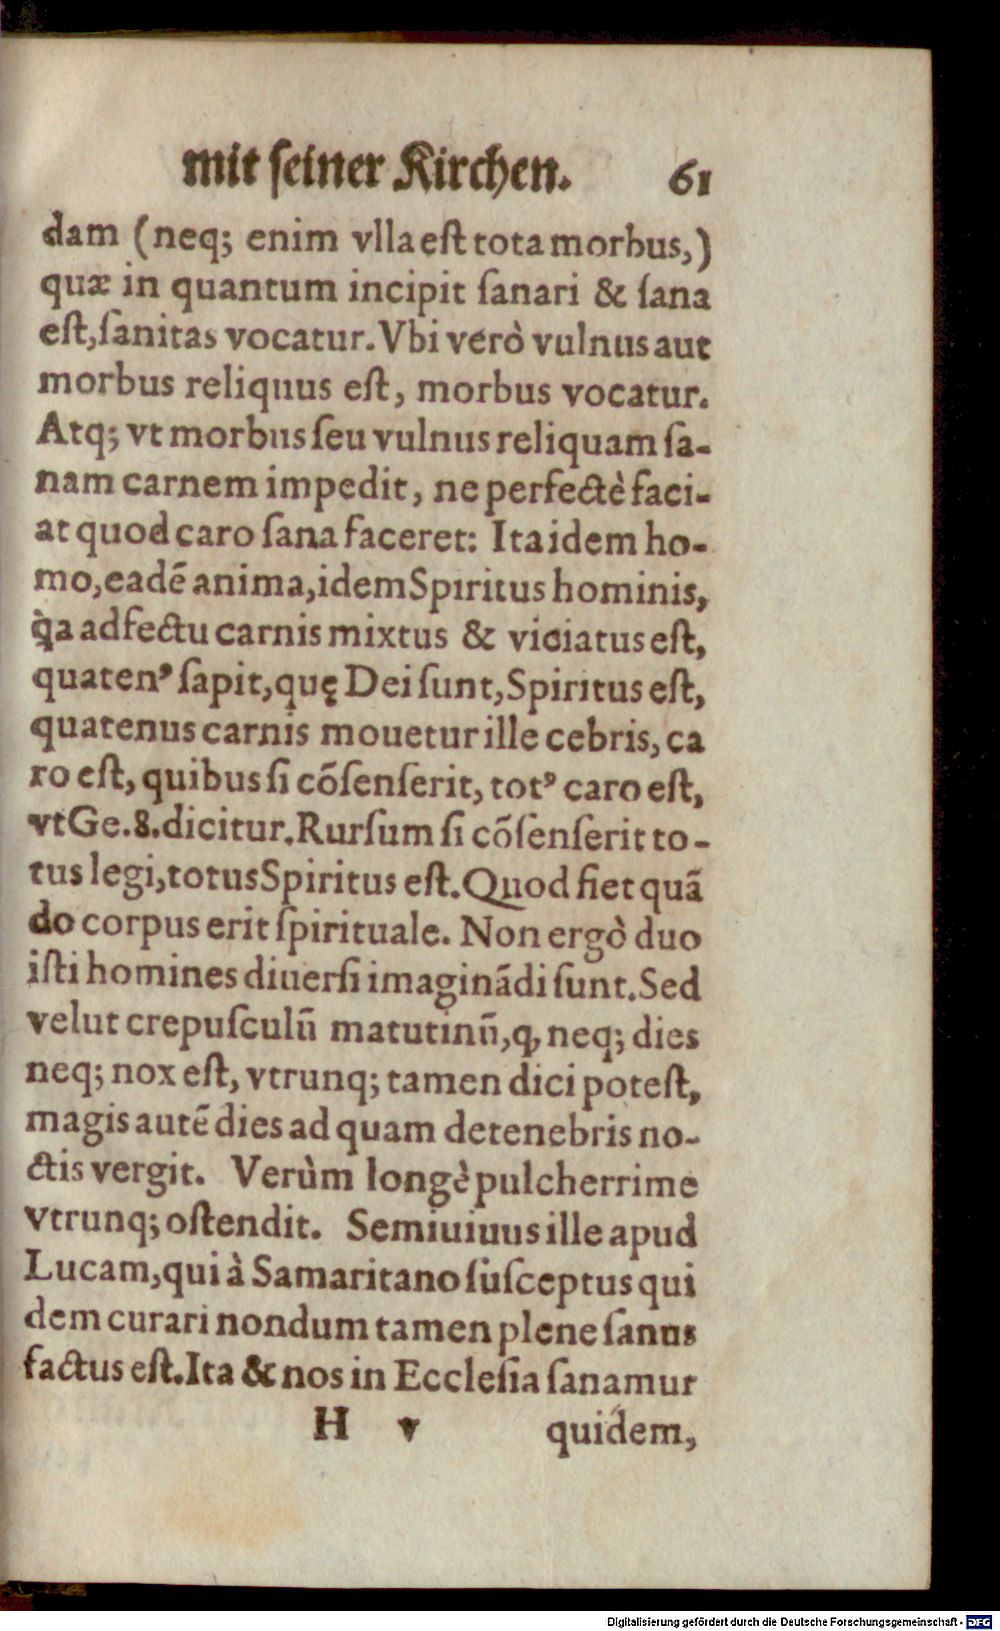 mit seiner Kirchen. 61
dam (neq; enim vlla est tota morbus,)
quæ in quantum incipit sanari & sana
est, sanitas vocatur. Vbi verò vulnus aut
morbus reliquus est, morbus vocatur.
Atq; vt morbus seu vulnus reliquam sa-
nam carnem impedit, ne perfectè faci-
at quod caro sana faceret: Ita idem ho-
mo, eadē anima, idem Spiritus hominis,
q̀a adfectu carnis mixtus & viciatus est,
quatenꝰ sapit, quę Dei sunt, Spiritus est,
quatenus carnis mouetur ille cebris, ca
ro est, quibus si cōsenserit, totꝰ caro est,
vt Ge. 8. dicitur. Rursum si cōsenserit to-
tus legi, totus Spiritus est. Quod fiet quā
do corpus erit spirituale. Non ergò duo
isti homines diuersi imaginādi sunt. Sed
velut crepusculū matutinū, ꝙ neq; dies
neq; nox est, vtrunq; tamen dici potest,
magis autē dies ad quam detenebris no-
ctis vergit. Verùm longè pulcherrime
vtrunq; ostendit. Semiuiuus ille apud
Lucam, qui à Samaritano susceptus qui
dem curari nondum tamen plene sanus
factus est. Ita & nos in Ecclesia sanamur
H v quidem,
Digitalisierung gefördert durch die Deutsche Forschungsgemeinschaft - DFG